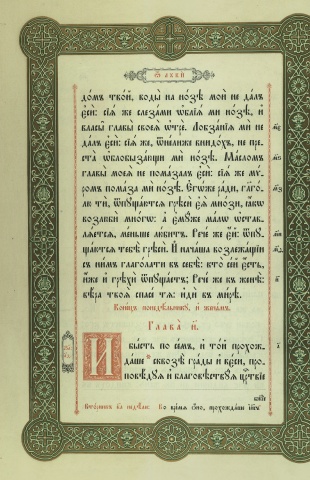 Ѿ лꙋкѝ
домъ твой, воды̀ на но́зѣ моѝ не да́лъ
є҆сѝ: сїѧ́ же слеза́ми ѡ҆блїѧ̀ ми но́зѣ, и҆
власы̑ главы̀ своеѧ̀ ѡ҆трѐ. Лобза́нїѧ ми не
да́лъ є҆сѝ: сїѧ́ же, ѿне́лиже внидо́хъ, не пре-
ста̀ ѡ҆блобыза́ющи ми но́зѣ. Ма́сломъ
главы̀ моеѧ̀ не пома́залъ є҆сѝ: сїѧ́ же мѵ́-
ромъ пома́за ми но́зѣ. Є҆гѡ́же ра́ди, гл҃го́-
лю тѝ, ѿпꙋща́ютсѧ грѣсѝ є҆ѧ̀ мно́зи, ꙗ҆́кѡ
возлюбѝ мно́гѡ: а҆ є҆мꙋ́же ма́лѡ ѡ҆ставлѧ́-
етсѧ, ме́ньше лю́битъ. Рече́ же є҆́й: ѿпꙋ-
ща́ютсѧ тебѣ̀ грѣсѝ. И҆ нача́ша возлежа́щїи
съ ни́мъ глаго́лати въ себѣ̀: кто̀ се́й є҆́сть,
и҆́же и҆ грѣхѝ ѿпꙋща́етъ; Рече́ же къ женѣ̀:
вѣ́ра твоѧ̀ спасе́ тѧ: и҆дѝ въ ми́рѣ.
Коне́цъ понедѣ́льникꙋ, и҆ жена́мъ.
Глава̀ и҃.
И҆ бы́сть по се́мъ, и҆ то́й прохож-
да́ше сквозѣ̀ гра́ды и҆ вє́си, про-
повѣ́дꙋѧ и҆ благовѣствꙋ́ѧ ца́рствїе
бж҃їе
Во вре́мѧ ѻ҆́но, прохожда́ше і҆и҃съ